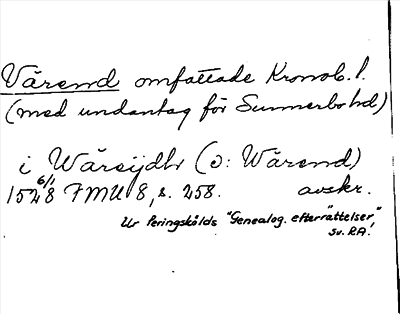 Värend omfattade Kronob. l.
(med undantag för Sunnerbo hd)
i Wäreijdh (ɔ: Wärend)
6/1
1528 FMU 8, s. 258. avskr.
Ur Peringskölds "Genealog. efterrättelser",
Sv. RA!